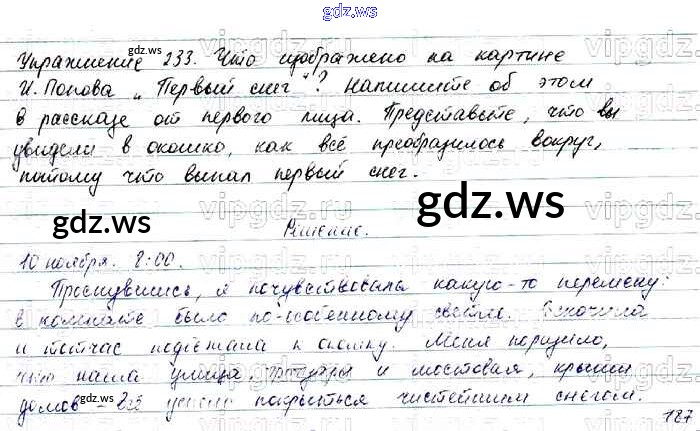 gdz.ws
gdz.ws
Упражнение 233. Что изображено на картине
И. Попова „Первый снег"? Напишите об этом
в рассказе от первого лица. Представьте, что вы
увидели в окошко, как всё преобразилось вокруг,
потому что выпал первый снег.
gdz.ws
gdz.ws
Решение.
10 ноября. 8:00.
Проснувшись, я почувствовала какую-то перемену:
в комнате было по-особенному светло. Вскочила
и тотчас подбежала к окошку. Меня поразило,
что наша улица, тротуары и мостовая, крыши
домов – всё успело покрыться чистейшим снегом.
gdz.ws
187